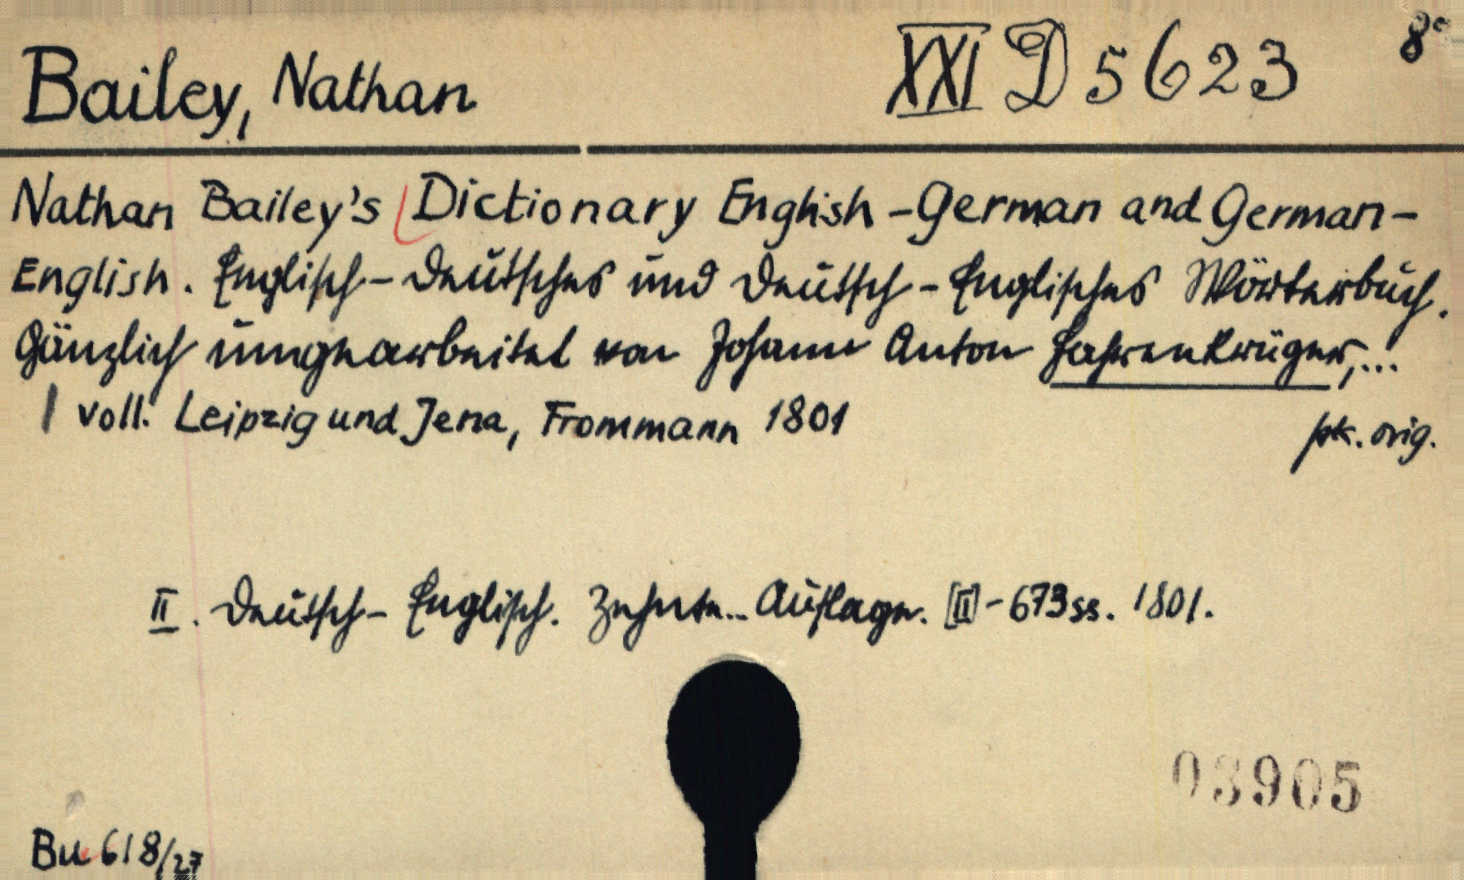 Bailey, Nathan XXI D 5623 8°
Nathan Bailey's Dictionary English-German and German-
English. Englisch-Deutsches und Deutsch-Englisches Wörterbuch.
Gänzlich umgearbeitet von Johann Anton Fahrenkrüger,...
1 voll. Leipzig und Jena, Frommann 1801 pk. orig.
II. Deutsch-Englisch. Zehnte... Auflage. [II]-673 ss. 1801.
03905
Bu 618/27